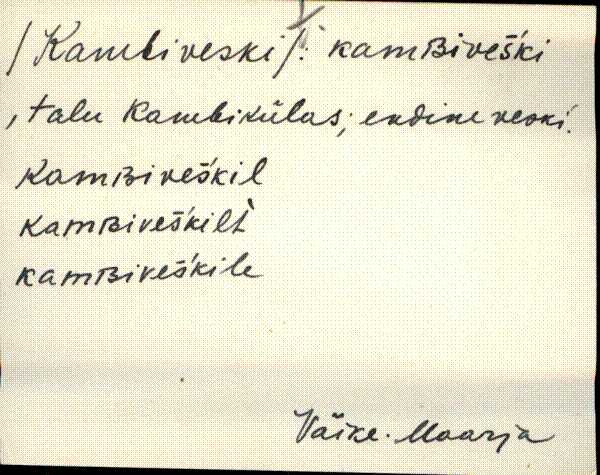 /Kambiveski/: kamʙiveśki
, talu Kambikülas; endine veski.
kamʙiveśkil
kamʙiveśkilt̀
kamʙiveśkile
Väike-Maarja